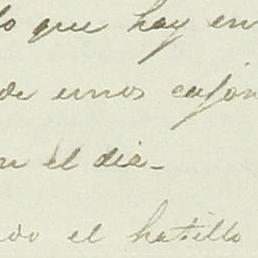 lo que hay en
de unos cajon
n el dia-
do el hatillo